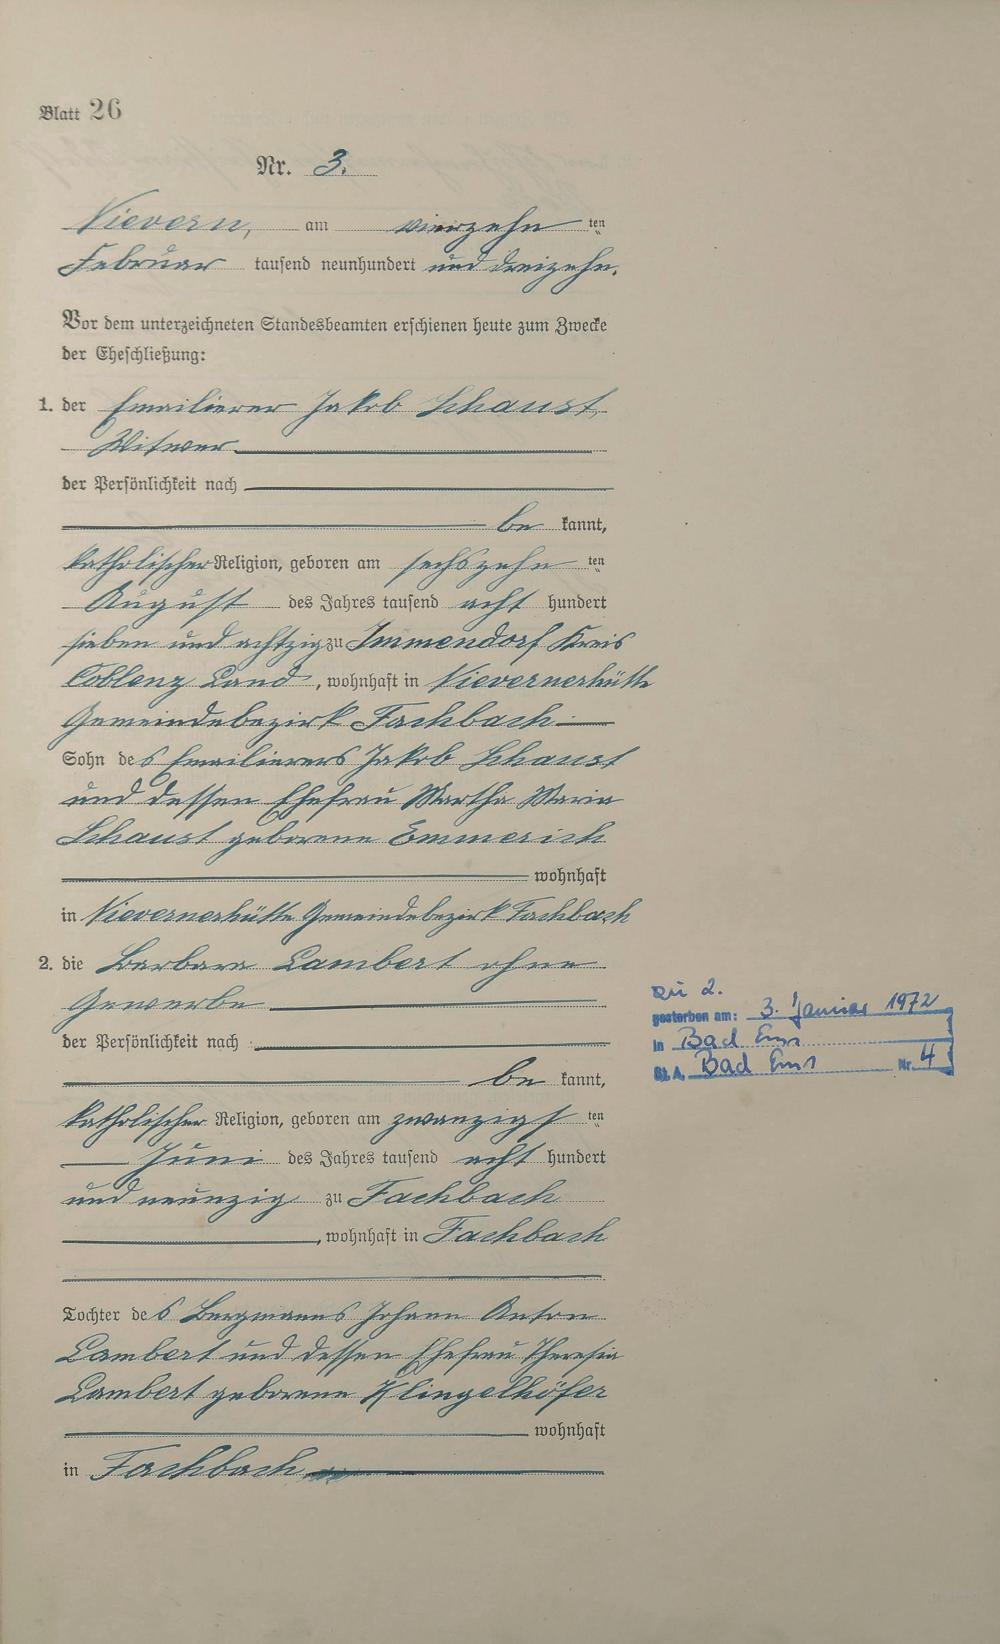 Blatt 26
Nr. 3.
Nievern, am vierzehn ten
Februar tausend neunhundert und dreizehn.
Vor dem unterzeichneten Standesbeamten erschienen heute zum Zwecke
der Eheschließung:
1. der Emailierer Jakob Schaust
Witwer
der Persönlichkeit nach
be kannt,
katholischer Religion, geboren am sechszehn ten
August des Jahres tausend acht hundert
sieben und achtzig zu Immendorf Kreis
Coblenz Land, wohnhaft in Nievernerhütte
Gemeindebezirk Fachbach
Sohn des Emailierers Jakob Schaust
und dessen Ehefrau Martha Maria
Schaust geborene Emmerich
wohnhaft
in Nievernerhütte Gemeindebezirk Fachbach
2. die Barbara Lambert ohne
Gewerbe
der Persönlichkeit nach
be kannt,
katholischer Religion, geboren am zwanzigs ten
Juni des Jahres tausend acht hundert
und neunzig zu Fachbach
, wohnhaft in Fachbach
Tochter des Bergmanns Johann Anton
Lambert und dessen Ehefrau Theresia
Lambert geborene Klingelhöfer
wohnhaft
in Fachbach
zu 2.
gestorben am: 3. Januar 1972
in Bad Ems
St. A. Bad Ems Nr. 4